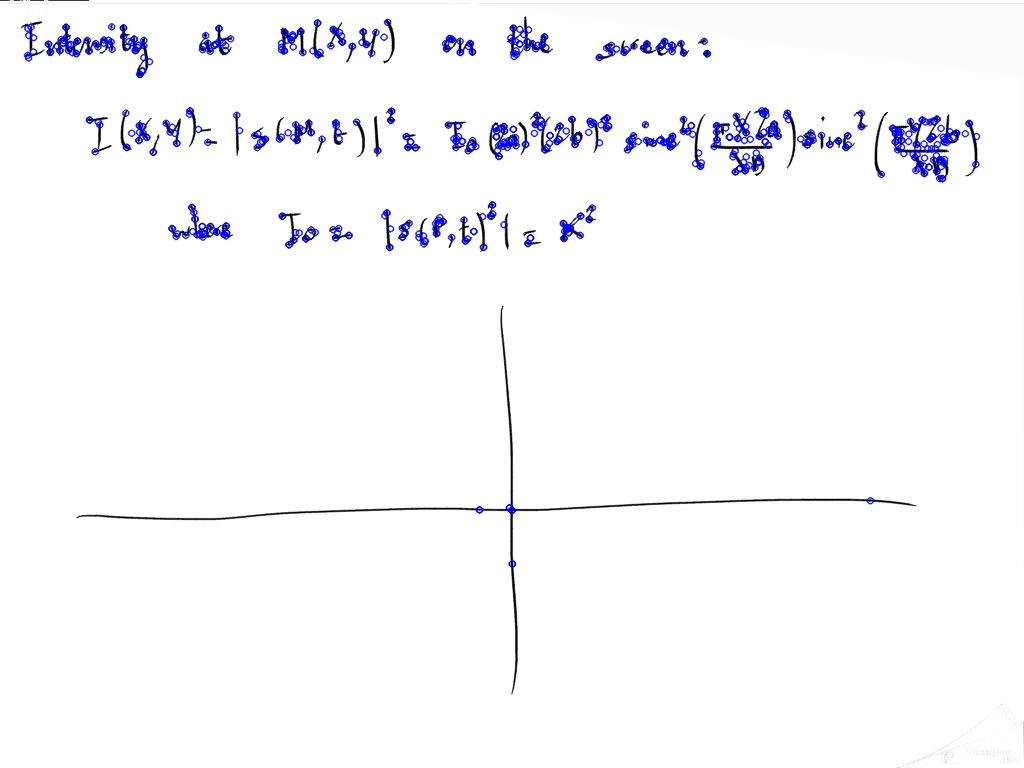 Intensity at M(X,Y) on the screen:
I(X,Y) = |s(M,t)|² = I₀ (2a)²(2b)² sinc²(πX2a/λD) sinc²(πY2b/λD)
where I₀ = |s(P,t)²| = K²